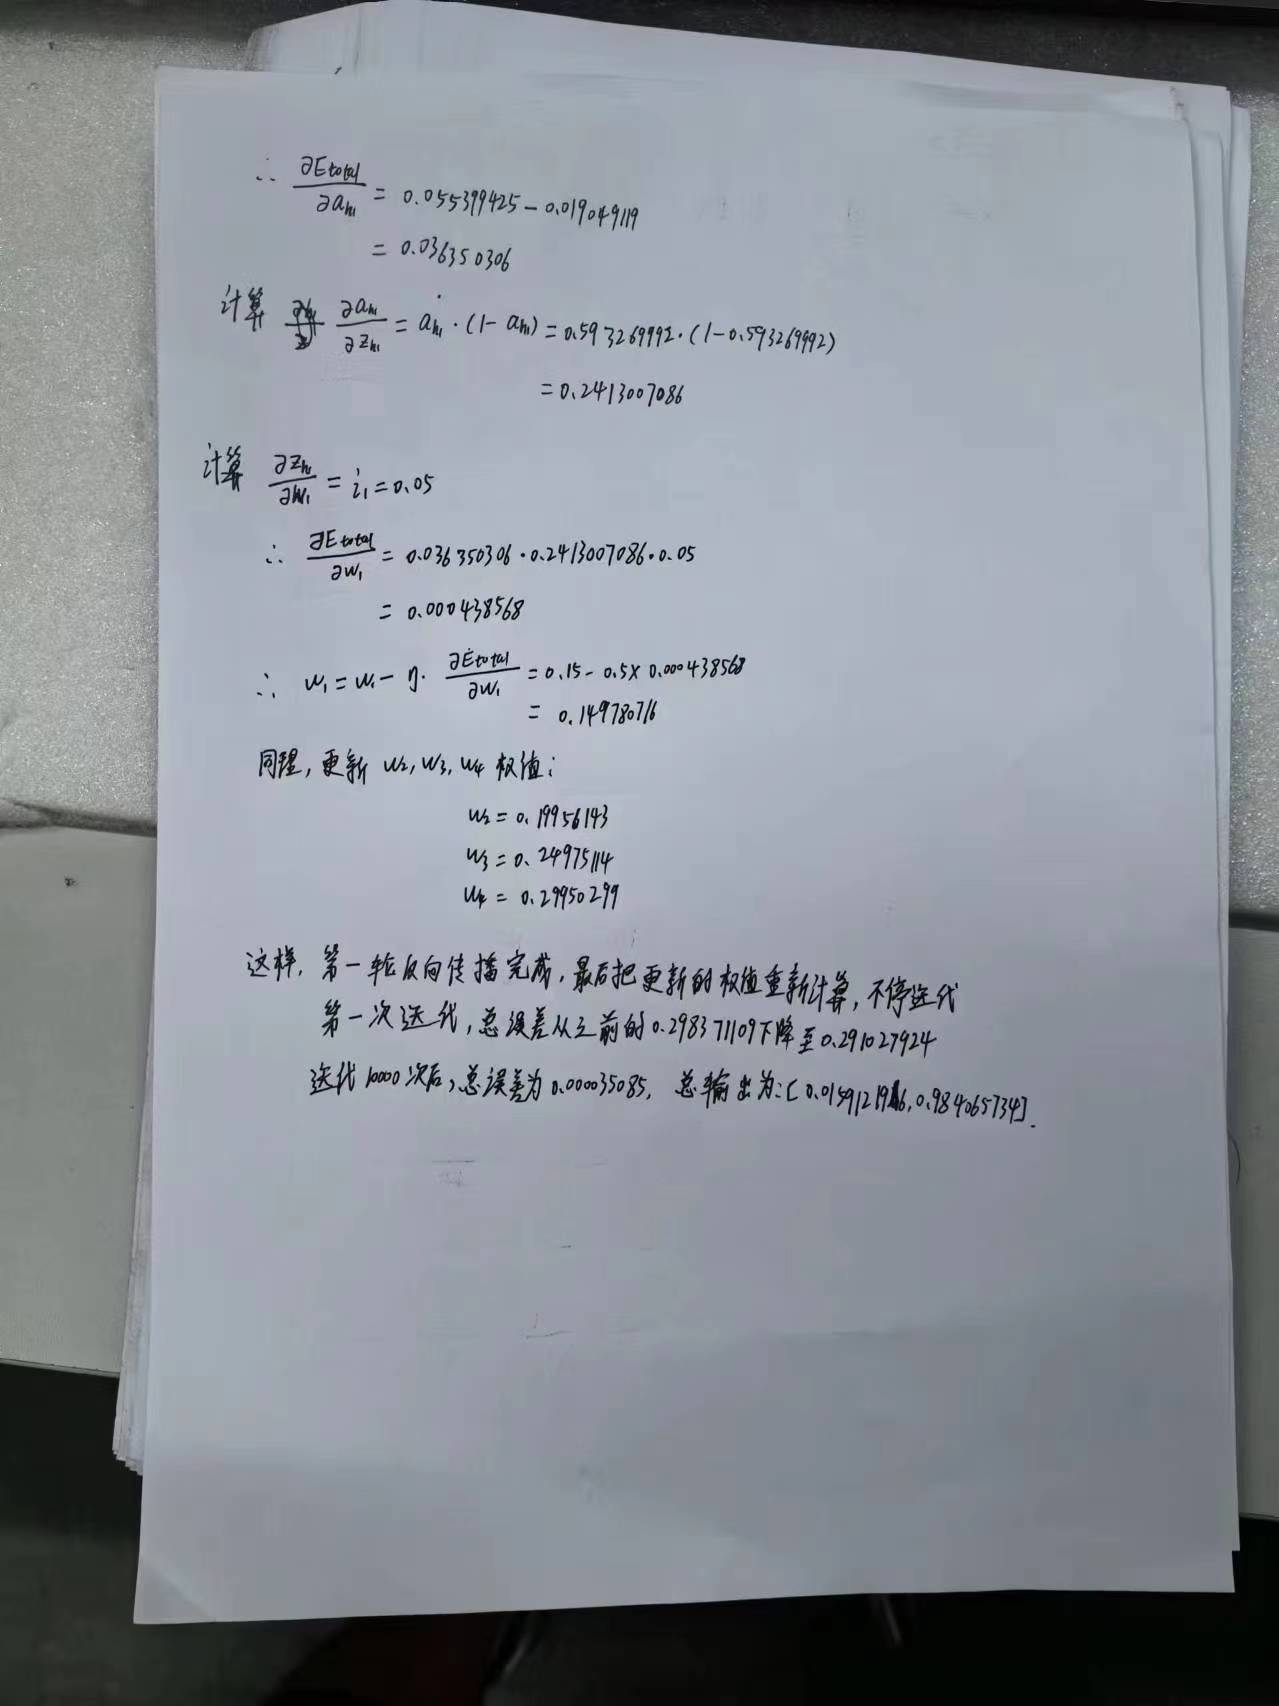 ∴ ∂Etotal/∂ah1 = 0.055399425 - 0.019049119
= 0.036350306
计算 ∂ah1/∂zh1 = ah1 · (1 - ah1) = 0.593269992 · (1-0.593269992)
= 0.2413007086
计算 ∂zh1/∂w1 = i1 = 0.05
∴ ∂Etotal/∂w1 = 0.036350306 · 0.2413007086 · 0.05
= 0.000438568
∴ w1 = w1 - η · ∂Etotal/∂w1 = 0.15 - 0.5 × 0.000438568
= 0.149780716
同理, 更新 w2, w3, w4 权值:
w2 = 0.19956143
w3 = 0.24975114
w4 = 0.29950299
这样, 第一轮反向传播完成, 最后把更新的权值重新计算, 不停迭代
第一次迭代, 总误差从之前的0.298371109下降至0.291027924
迭代10000次后, 总误差为0.000035085, 总输出为:[0.015912196, 0.984065734].